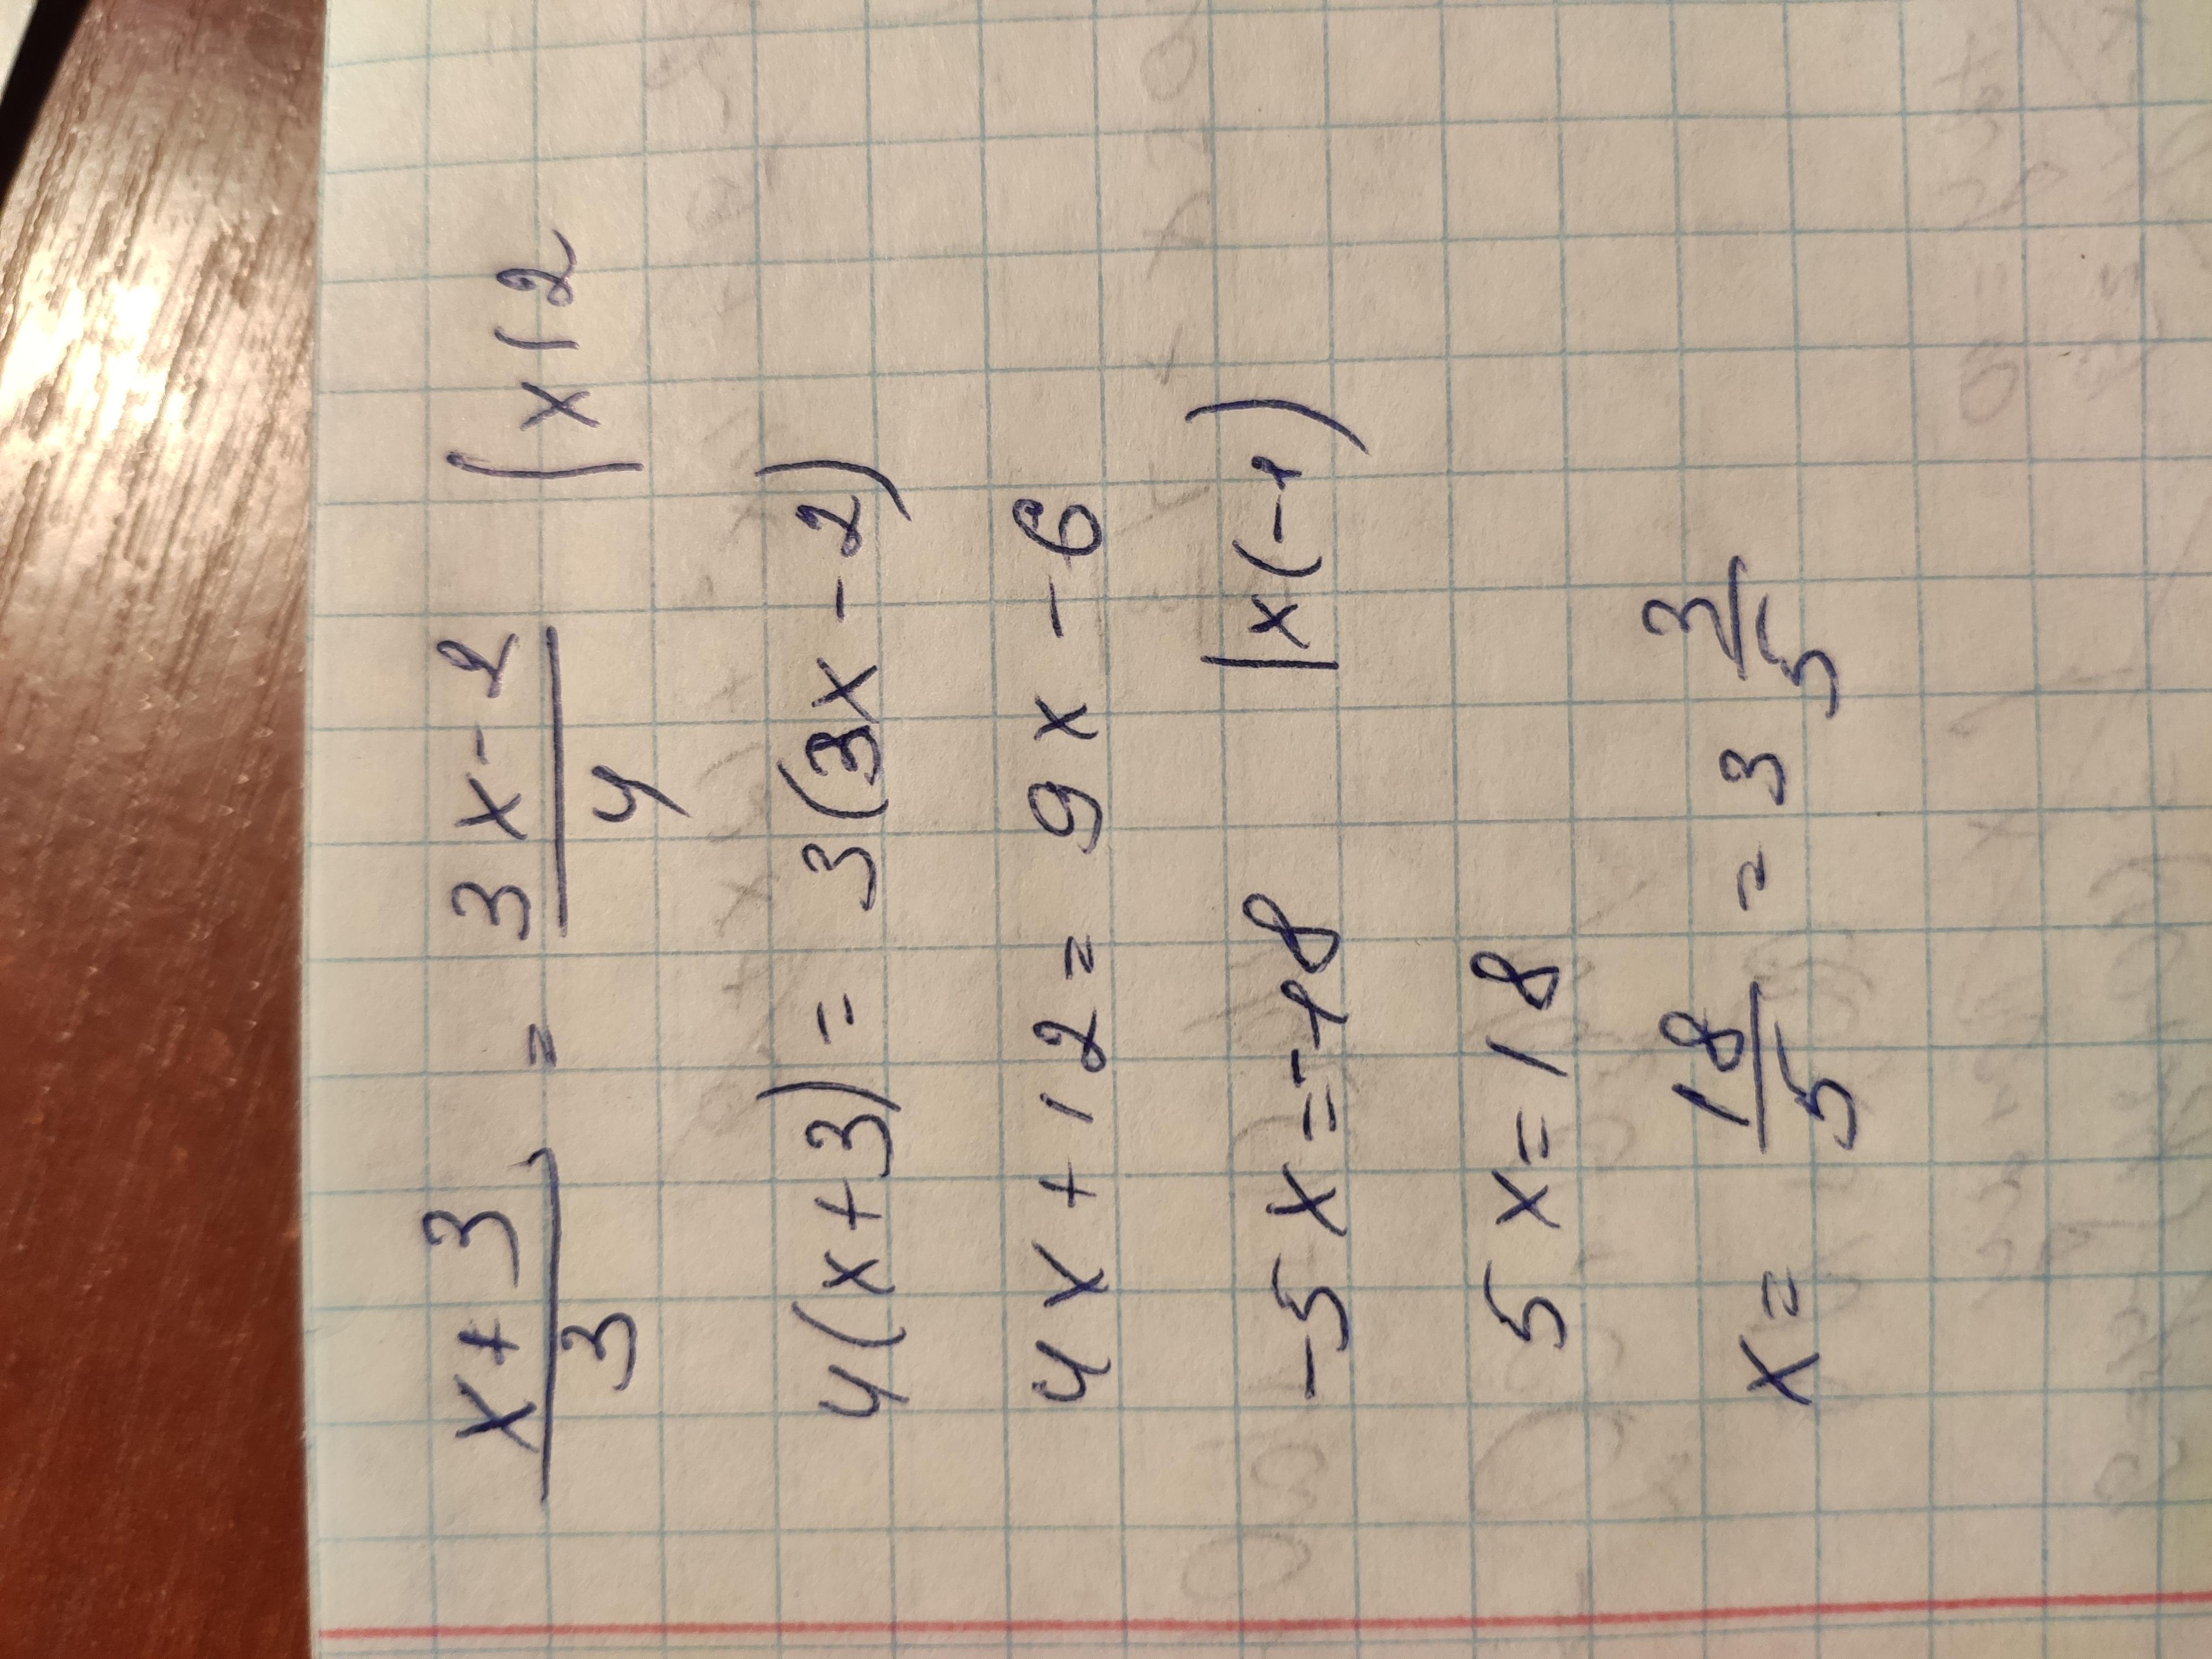 x+3/3 = 3x-2/4 |x12
4(x+3) = 3(3x-2)
4x+12 = 9x-6
-5x = -18 |x(-1)
5x = 18
x = 18/5 = 3 3/5